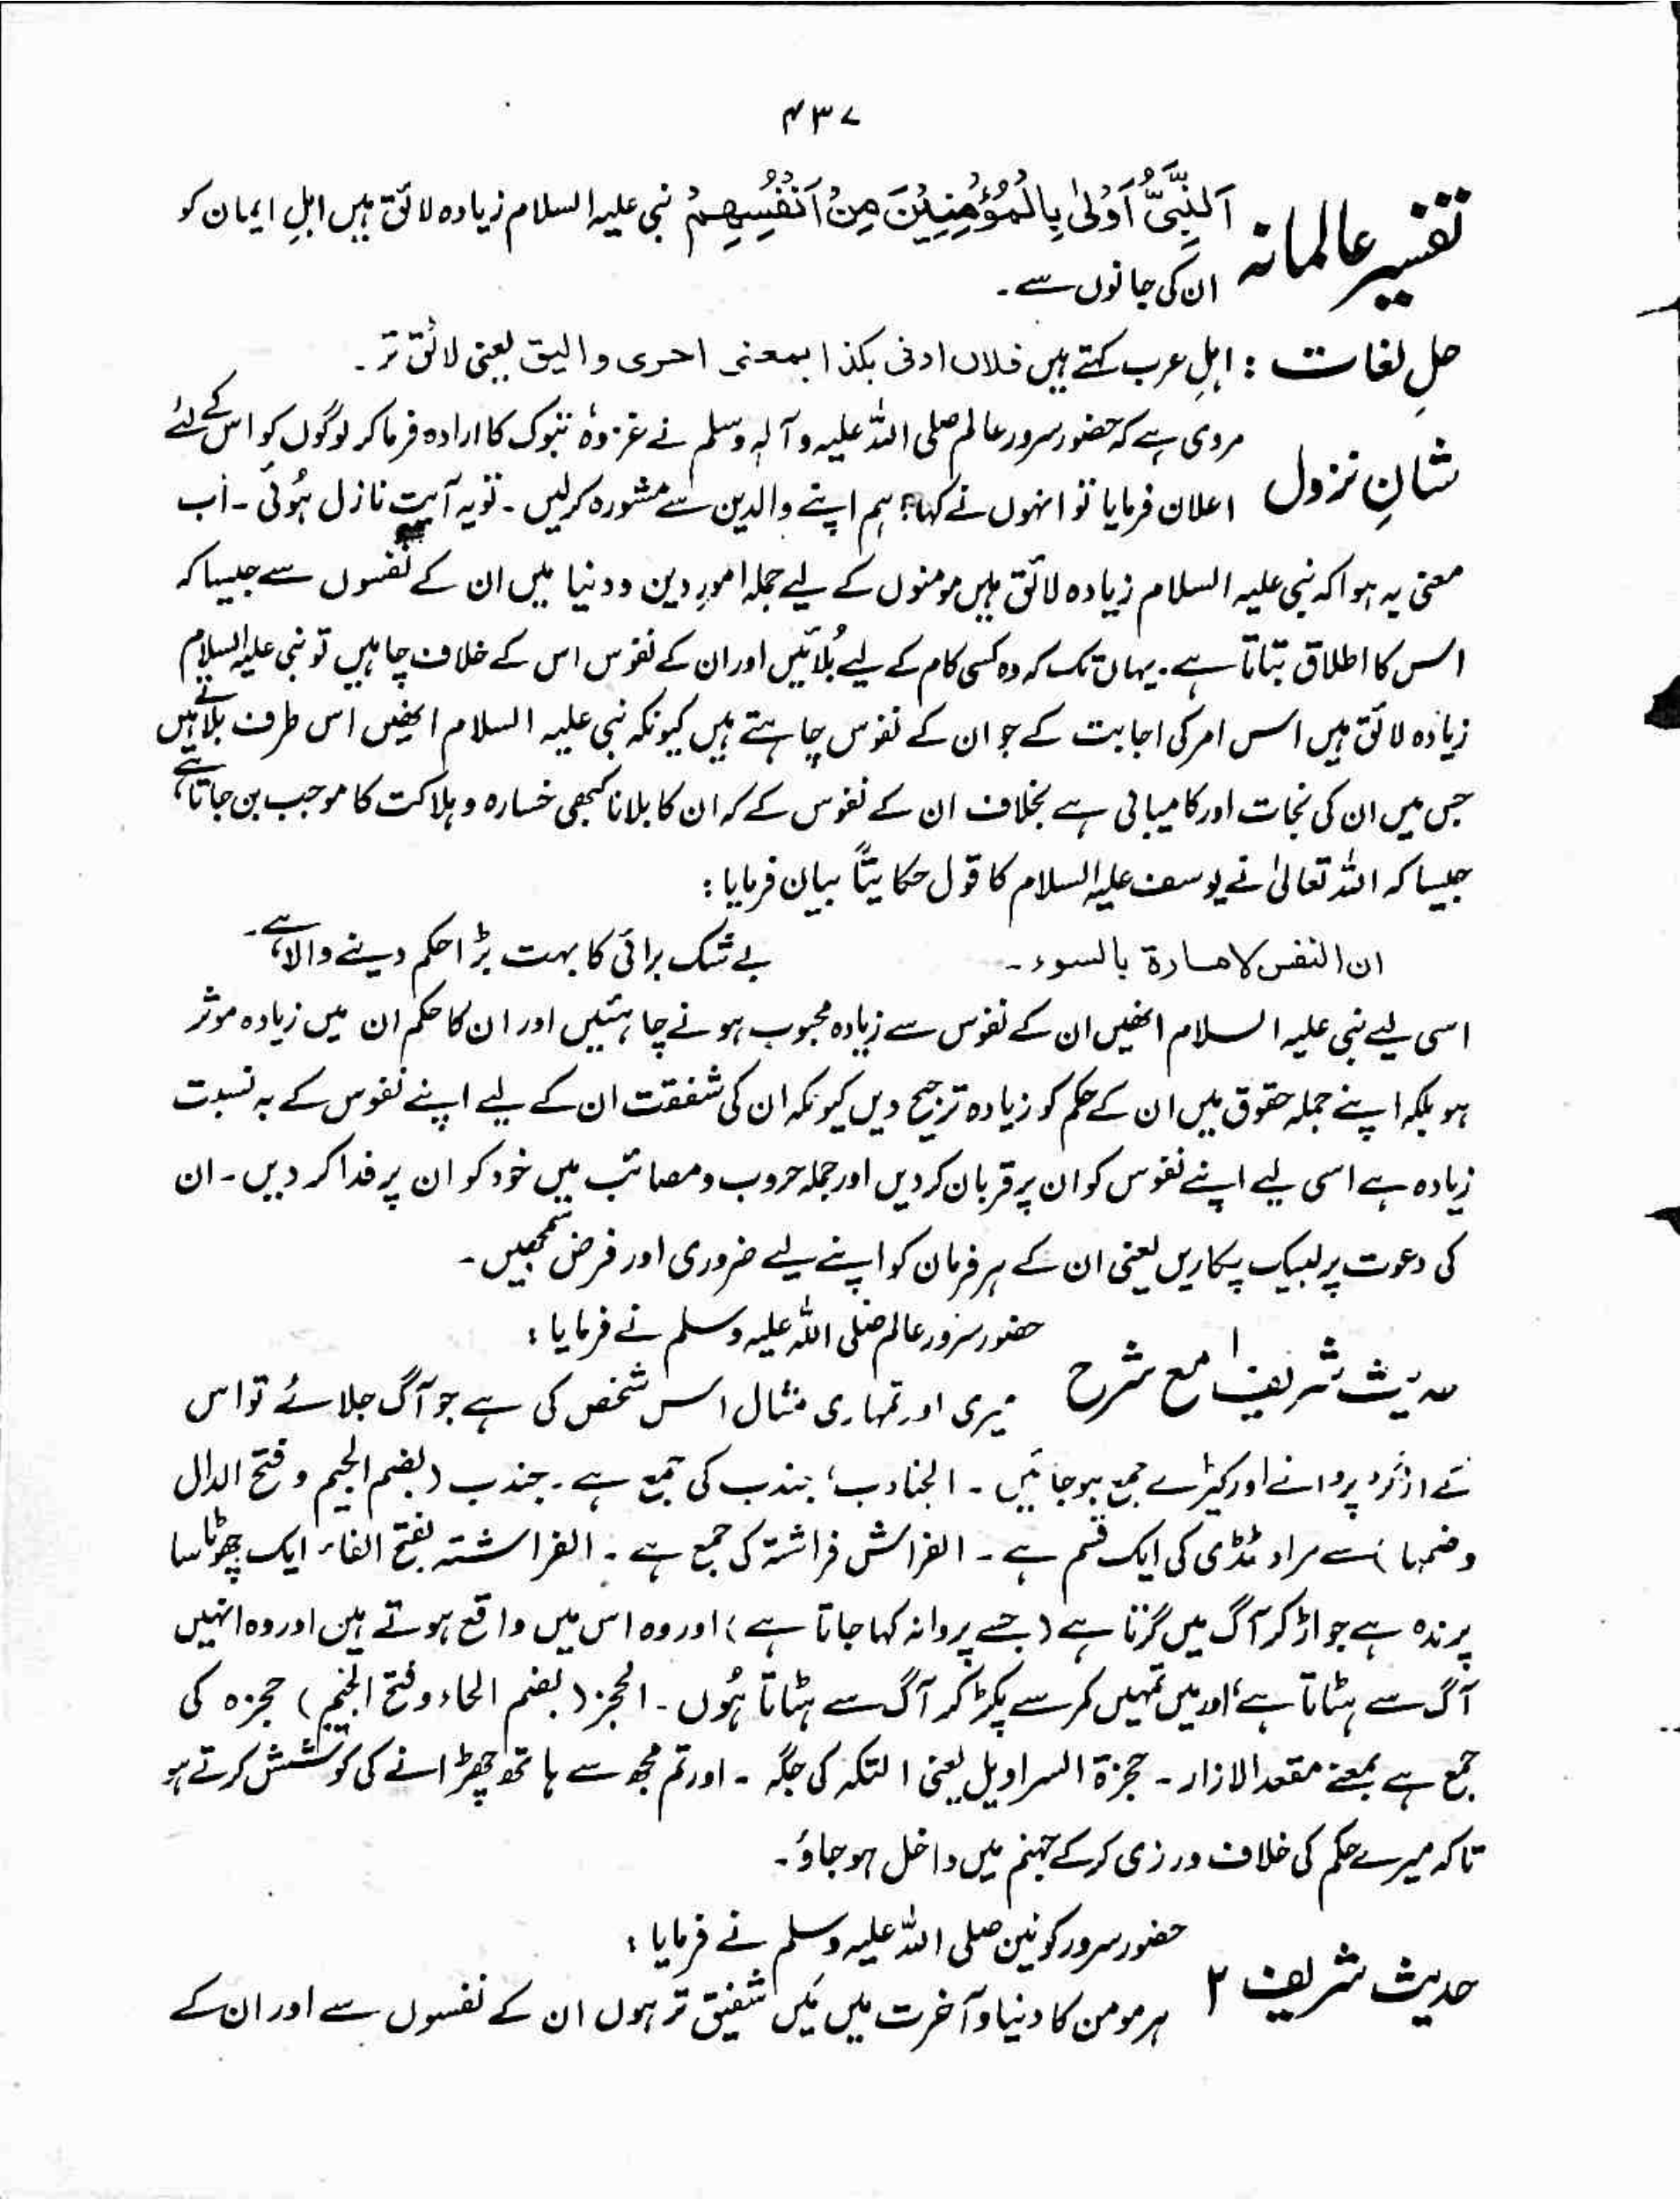 ۴۳۷
تفسیر عالمانہ اَلنَّبِیُّ اَوْلٰی بِالْمُؤْمِنِیْنَ مِنْ اَنْفُسِهِمْ نبی علیہ السلام زیادہ لائق ہیں اہلِ ایمان کو
ان کی جانوں سے۔
حلِ لغات : اہلِ عرب کہتے ہیں فلان ادنی بکذا بمعنی احری والیق یعنی لائق تر۔
شانِ نزول مروی ہے کہ حضور سرور عالم صلی اللہ علیہ وآلہٖ وسلم نے غزوۂ تبوک کا ارادہ فرما کر لوگوں کو اس کے لئے
اعلان فرمایا تو انہوں نے کہا؛ ہم اپنے والدین سے مشورہ کرلیں۔ تو یہ آیت نازل ہُوئی۔ اَب
معنی یہ ہوا کہ نبی علیہ السلام زیادہ لائق ہیں مومنوں کے لیے جملہ امورِ دین و دنیا میں ان کے نفسوں سے جیسا کہ
اس کا اطلاق بتاتا ہے۔ یہاں تک کہ وہ کسی کام کے لیے بُلائیں اور ان کے نفوس اس کے خلاف چاہیں تو نبی علیہ السلام
زیادہ لائق ہیں اس امر کی اجابت کے جو ان کے نفوس چاہتے ہیں کیونکہ نبی علیہ السلام انھیں اس طرف بلاتے ہیں
جس میں ان کی نجات اور کامیابی ہے بخلاف ان کے نفوس کے کہ ان کا بلانا کبھی خسارہ و ہلاکت کا موجب بن جاتا ہے،
جیسا کہ اللہ تعالیٰ نے یوسف علیہ السلام کا قول حکایتاً بیان فرمایا :
ان النفس لامارة بالسوء۔ بے شک برائی کا بہت بڑا حکم دینے والا ہے۔
اسی لیے نبی علیہ السلام انھیں ان کے نفوس سے زیادہ محبوب ہونے چاہئیں اور ان کا حکم ان میں زیادہ موثر
ہو بلکہ اپنے جملہ حقوق میں ان کے حکم کو زیادہ ترجیح دیں کیونکہ ان کی شفقت ان کے لیے اپنے نفوس کے بہ نسبت
زیادہ ہے اسی لیے اپنے نفوس کو ان پر قربان کردیں اور جملہ حروب و مصائب میں خود کو ان پر فدا کر دیں۔ ان
کی دعوت پر لبیک پکاریں یعنی ان کے ہر فرمان کو اپنے لیے ضروری اور فرض سمجھیں۔
حدیث شریف ۱ مع شرح حضور سرور عالم صلی اللہ علیہ وسلم نے فرمایا :
میری اور تمہاری مثال اس شخص کی ہے جو آگ جلائے تو اس
کے اردگرد پروانے اور کیڑے جمع ہوجائیں۔ الجنادب؛ جندب کی جمع ہے۔ جندب (بضم الجیم و فتح الدال
وضمہا) سے مراد ٹڈی کی ایک قسم ہے۔ الفراش فراشۃ کی جمع ہے۔ الفراشتہ بفتح الفاء ایک چھوٹا سا
پرندہ ہے جو اڑ کر آگ میں گرتا ہے (جسے پروانہ کہا جاتا ہے) اور وہ اس میں واقع ہوتے ہیں اور وہ انہیں
آگ سے ہٹاتا ہے، اور میں تمہیں کمر سے پکڑ کر آگ سے ہٹاتا ہُوں۔ الحجز (بضم الحاء و فتح الجیم) حجزہ کی
جمع ہے بمعنے مقعد الازار۔ حجزۃ السراویل یعنی التکہ کی جگہ۔ اور تم مجھ سے ہاتھ چھڑانے کی کوشش کرتے ہو
تاکہ میرے حکم کی خلاف ورزی کرکے جہنم میں داخل ہوجاؤ۔
حدیث شریف ۲ حضور سرور کونین صلی اللہ علیہ وسلم نے فرمایا :
ہر مومن کا دنیا و آخرت میں مَیں شفیق تر ہوں ان کے نفسوں سے اور ان کے